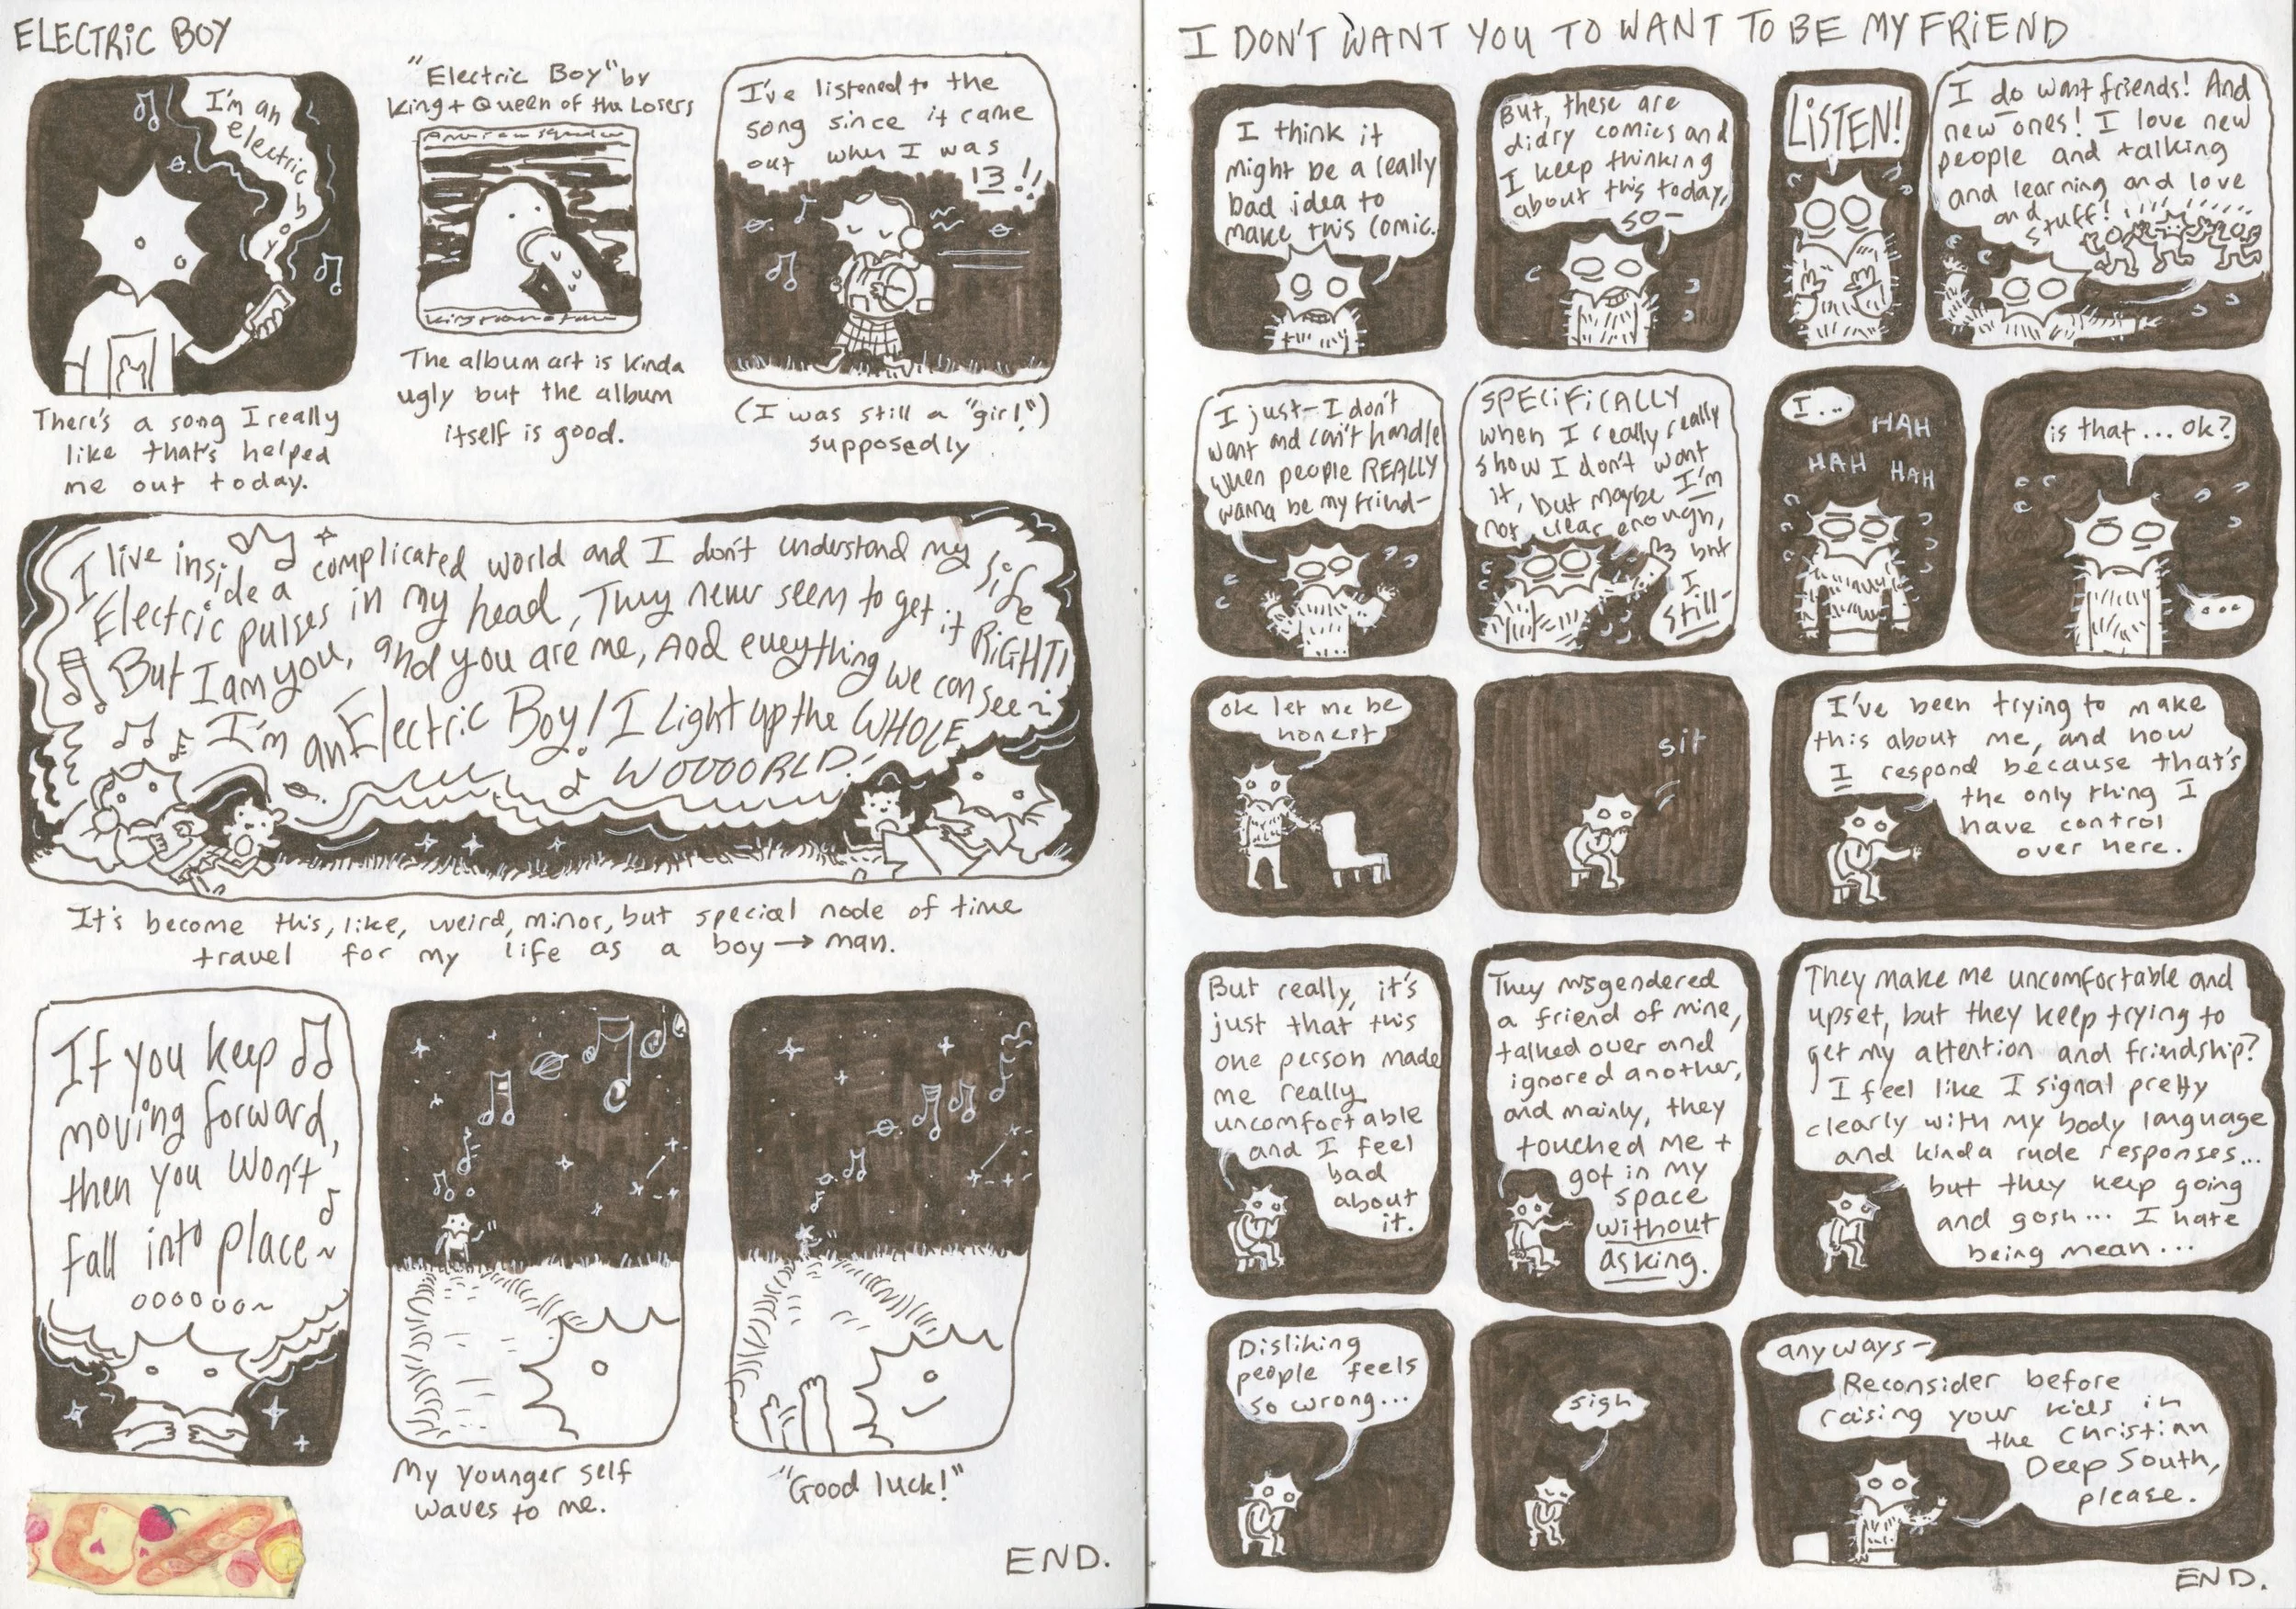 ELECTRIC BOY
I'm an
electric
boy
There's a song I really
like that's helped
me out today.
"Electric Boy" by
King + Queen of the Losers
The album art is kinda
ugly but the album
itself is good.
I've listened to the
song since it came
out when I was
13!!
(I was still a "girl")
supposedly
I live inside a complicated world and I don't understand my life
Electric pulses in my head, They never seem to get it RIGHT!
But I am you, and you are me, And everything we can see~
I'm an Electric Boy! I Light up the WHOLE
WOOOORLD!
It's become this, like, weird, minor, but special node of time
travel for my life as a boy → man.
If you keep
moving forward,
then you won't
fall into place~
oooooo~
My younger self
waves to me.
"Good luck!"
END.
I DON'T WANT YOU TO WANT TO BE MY FRIEND
I think it
might be a really
bad idea to
make this comic.
But, these are
diary comics and
I keep thinking
about this today,
so-
LISTEN!
I do want friends! And
new ones! I love new
people and talking
and learning and love
and
stuff!
I just- I don't
want and can't handle
when people REALLY
wanna be my friend-
SPECIFICALLY
when I really really
show I don't want
it, but maybe I'm
not clear enough,
but
I
still-
I...
HAH
HAH HAH
is that... ok?
...
ok let me be
honest
sit
I've been trying to make
this about me, and how
I respond because that's
the only thing I
have control
over here.
But really, it's
just that this
one person made
me really
uncomfortable
and I feel
bad
about
it.
They misgendered
a friend of mine,
talked over and
ignored another,
and mainly, they
touched me +
got in my
space
without
asking.
They make me uncomfortable and
upset, but they keep trying to
get my attention and friendship?
I feel like I signal pretty
clearly with my body language
and kinda rude responses...
but they keep going
and gosh... I hate
being mean...
Disliking
people feels
so wrong...
sigh
anyways-
Reconsider before
raising your kids in
the Christian
Deep South,
please.
END.